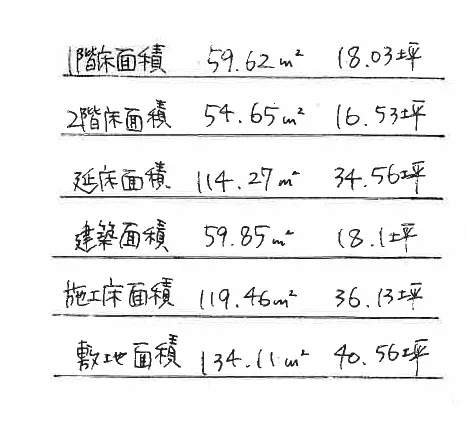 1階床面積 59.62m² 18.03坪
2階床面積 54.65m² 16.53坪
延床面積 114.27m² 34.56坪
建築面積 59.85m² 18.1坪
施工床面積 119.46m² 36.13坪
敷地面積 134.11m² 40.56坪